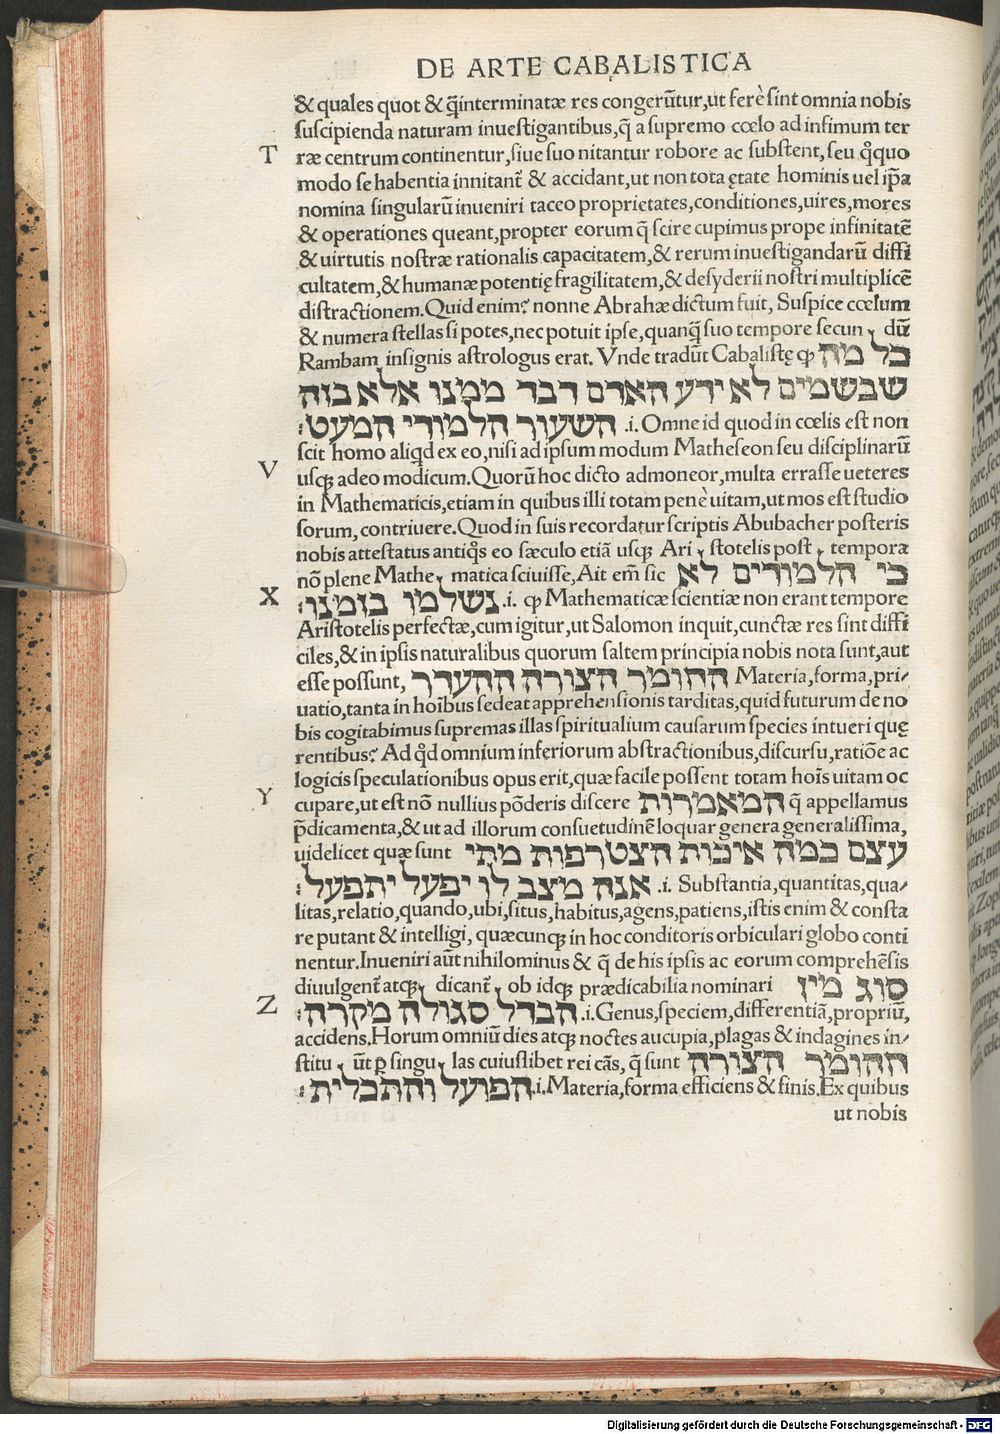 DE ARTE CABALISTICA
& quales quot & q̃interminatæ res congerũtur,ut ferè sint omnia nobis
suscipienda naturam inuestigantibus,q̃ a supremo cœlo ad infimum ter
T
ræ centrum continentur,siue suo nitantur robore ac substent,seu qͦquo
modo se habentia innitant̃ & accidant,ut non tota ętate hominis uel ip̃a
nomina singularũ inueniri taceo proprietates,conditiones,uires,mores
& operationes queant,propter eorum q̃ scire cupimus prope infinitatẽ
& uirtutis nostræ rationalis capacitatem,& rerum inuestigandarũ diffi
cultatem,& humanæ potentię fragilitatem,& desyderii nostri multiplicẽ
distractionem.Quid enim? nonne Abrahæ dictum fuit, Suspice cœlum
& numera stellas si potes,nec potuit ipse,quanq̃ suo tempore secun dũ
Rambam insignis astrologus erat. Vnde tradũt Cabalistę ꝙ כל מה
שבשמים לא ידע האדם דבר ממנו אלא בזה
השעור הלמודי המעט: .i. Omne id quod in cœlis est non
scit homo aliqd ex eo,nisi ad ipsum modum Matheseon seu disciplinarũ
V
usqꝫ adeo modicum. Quorũ hoc dicto admoneor,multa errasse ueteres
in Mathematicis,etiam in quibus illi totam penè uitam,ut mos est studio
sorum, contriuere.Quod in suis recordatur scriptis Abubacher posteris
nobis attestatus antiqͦs eo sæculo etiã usqꝫ Ari stotelis post tempora
nõ plene Mathe matica sciuisse,Ait em̃ sic כי הלמודים לא
X
נשלמו בזמנו: .i. ꝙ Mathematicæ scientiæ non erant tempore
Aristotelis perfectæ,cum igitur,ut Salomon inquit,cunctæ res sint diffi
ciles,& in ipsis naturalibus quorum saltem principia nobis nota sunt,aut
esse possunt, החומר הצורה ההעדר Materia,forma,pri/
uatio,tanta in hoĩbus sedeat apprehensionis tarditas,quid futurum de no
bis cogitabimus supremas illas spiritualium causarum species intueri quę
rentibus? Ad qͦd omnium inferiorum abstractionibus,discursu,ratiõe ac
logicis speculationibus opus erit,quæ facile possent totam hoĩs uitam oc
Y
cupare,ut est nõ nullius põderis discere המאמרות q̃ appellamus
p̃dicamenta,& ut ad illorum consuetudinẽ loquar genera generalissima,
uidelicet quæ sunt עצם כמה איכות הצטרפות מתי
אנה מצב לו יפעל יתפעל: .i. Substantia,quantitas,qua/
litas,relatio,quando,ubi,situs,habitus,agens,patiens,istis enim & consta
re putant & intelligi, quæcunqꝫ in hoc conditoris orbiculari globo conti
nentur.Inueniri aũt nihilominus & q̃ de his ipsis ac eorum comprehẽsis
diuulgent̃ atqꝫ dicant̃ ob idqꝫ prædicabilia nominari סוג מין
Z
הבדל סגולה מקרה: .i.Genus,speciem,differentiã,propriũ,
accidens.Horum omniũ dies atqꝫ noctes aucupia,plagas & indagines in/
stitu ũt ꝑ singu las cuiuslibet rei cãs, q̃ sunt ההומר הצורה
הפועל והתכלית: .i.Materia,forma efficiens & finis.Ex quibus
ut nobis
Digitalisierung gefördert durch die Deutsche Forschungsgemeinschaft - DFG